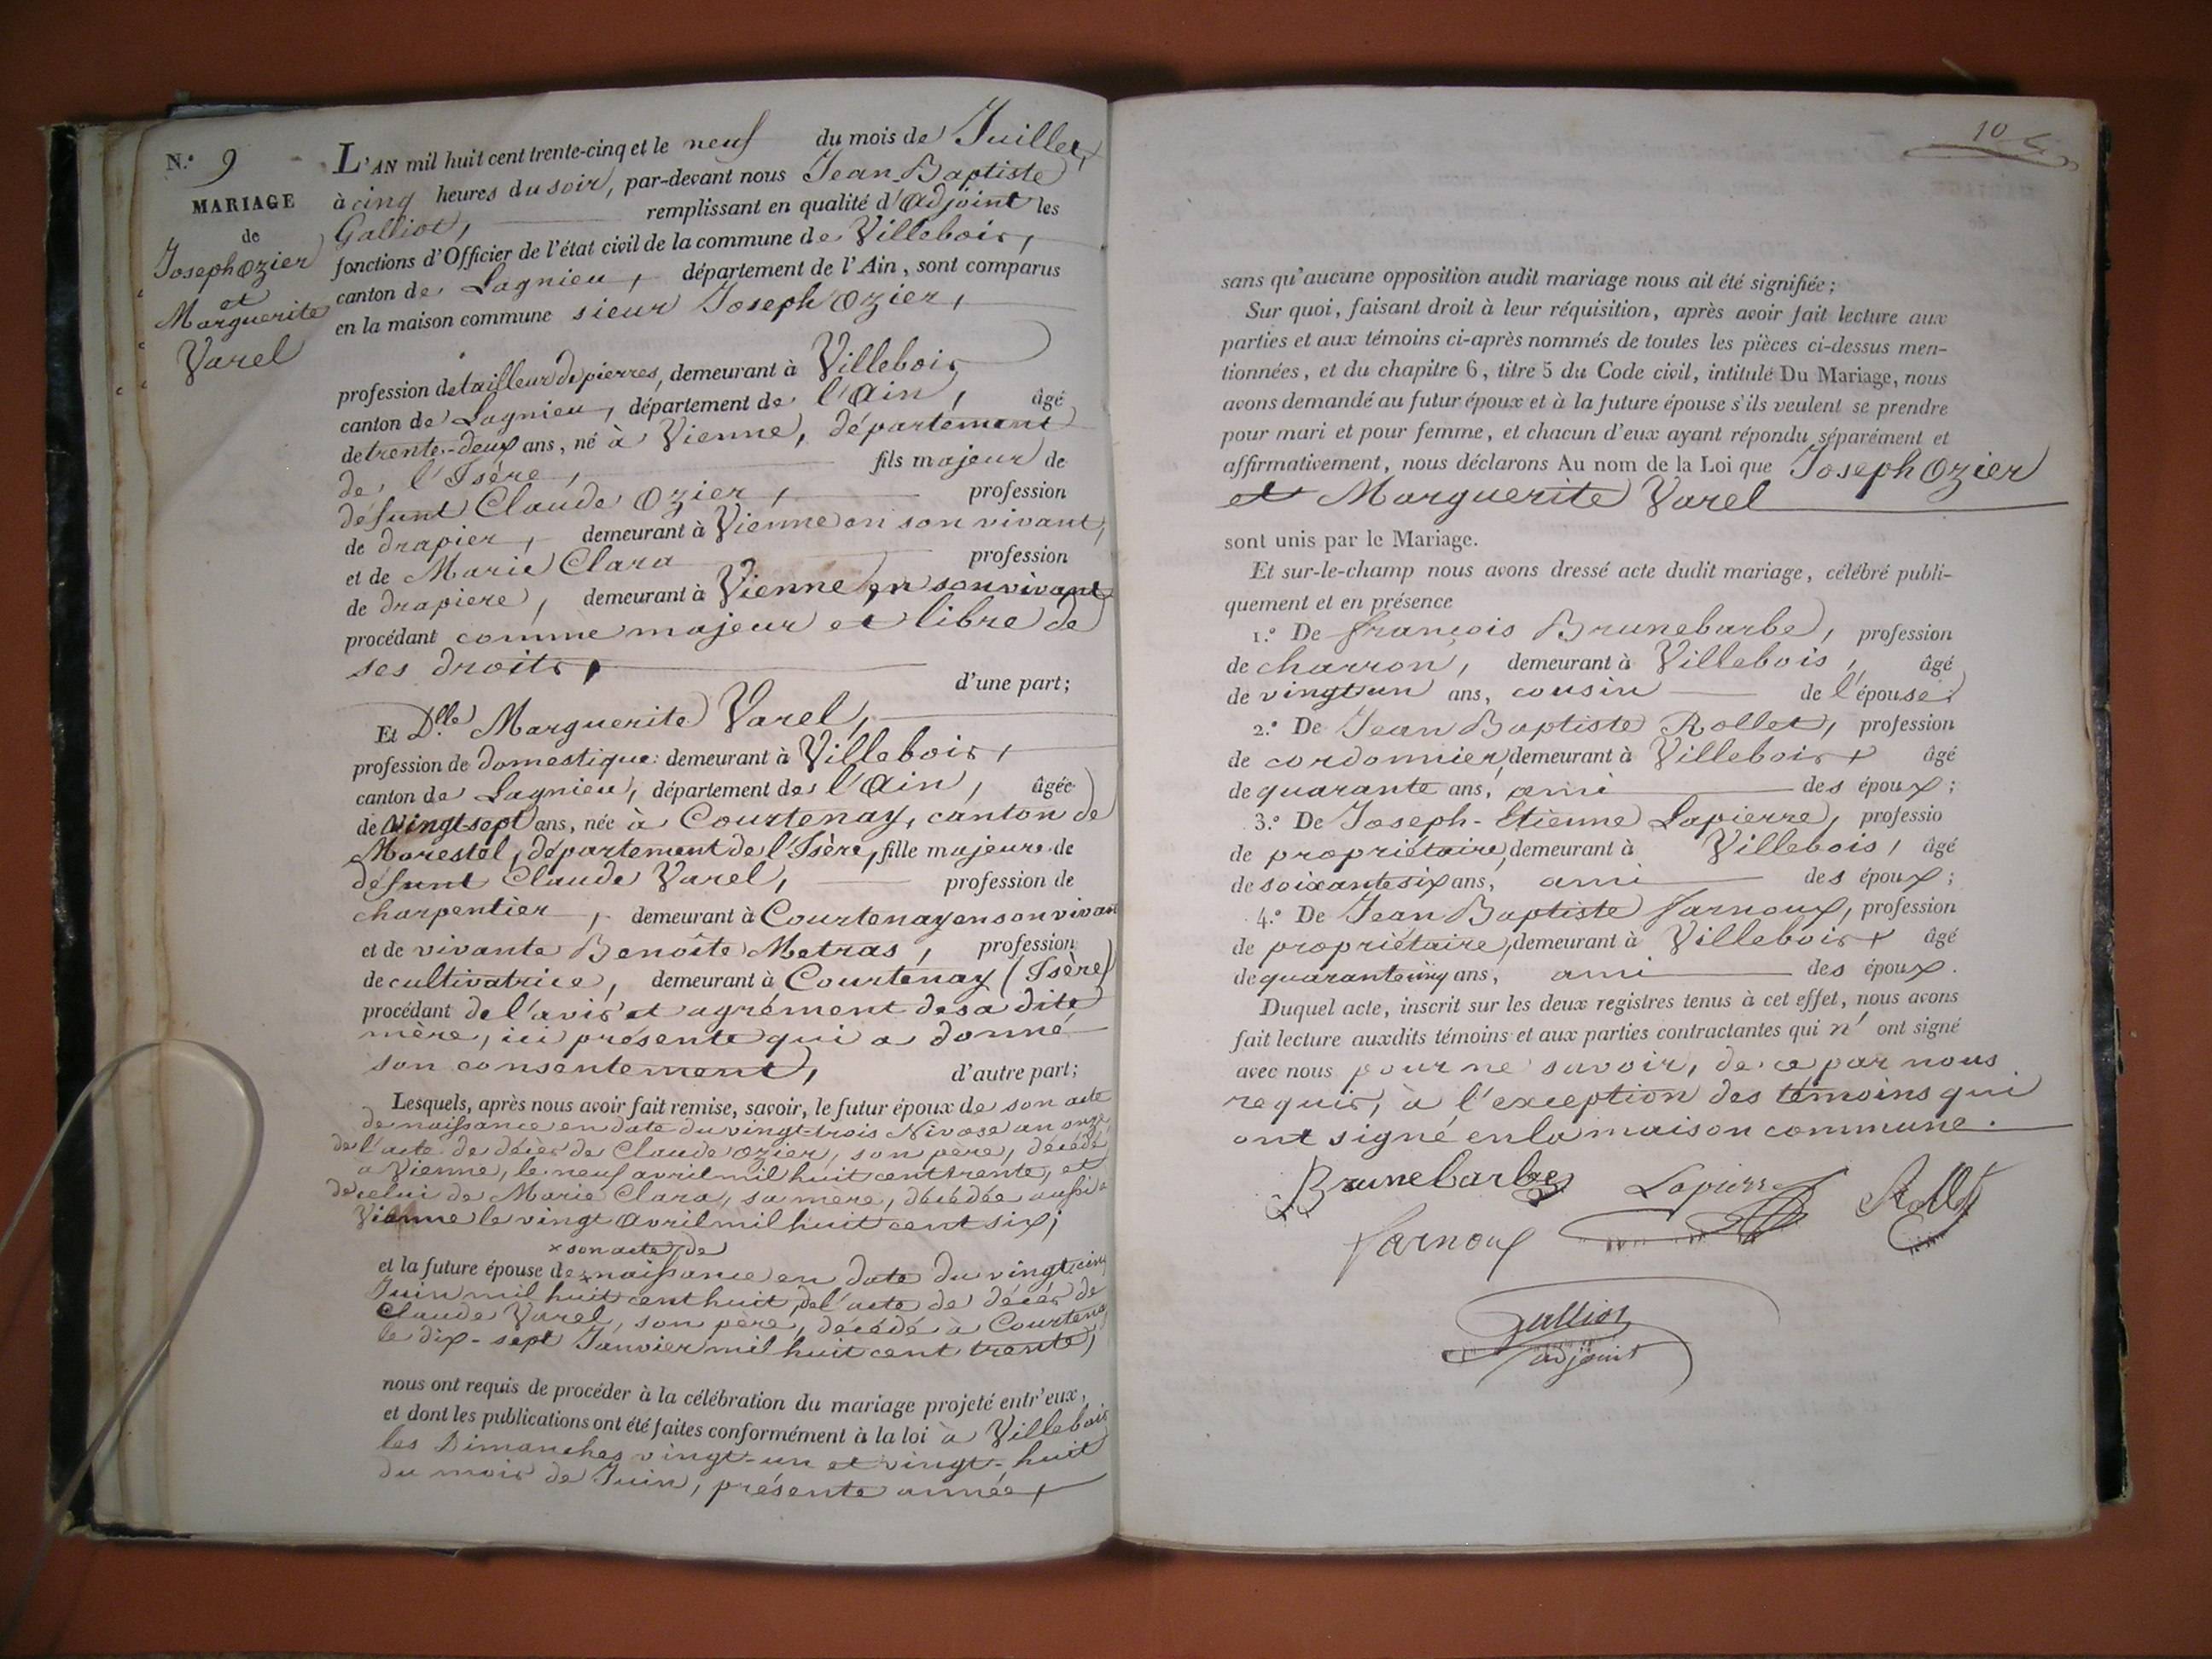 N.º 9
MARIAGE
de
Joseph Ozier
et
Marguerite
Varel
L'AN mil huit cent trente-cinq et le neuf du mois de Juillet,
à cinq heures du soir, par-devant nous Jean-Baptiste
Galliot, remplissant en qualité d'Adjoint les
fonctions d'Officier de l'état civil de la commune de Villebois,
canton de Lagnieu, département de l'Ain, sont comparus
en la maison commune sieur Joseph Ozier,
profession de tailleur de pierres, demeurant à Villebois
canton de Lagnieu, département de l'Ain, âgé
de trente-deux ans, né à Vienne, département
de l'Isère, fils majeur de
défunt Claude Ozier, profession
de drapier, demeurant à Vienne en son vivant,
et de Marie Clara profession
de drapiere, demeurant à Vienne en son vivant
procédant comme majeur et libre de
ses droits, d'une part;
Et D.lle Marguerite Varel,
profession de domestique: demeurant à Villebois,
canton de Lagnieu, département de l'Ain, âgée
de vingt-sept ans, née à Courtenay, canton de
Morestel, département de l'Isère, fille majeure de
défunt Claude Varel, profession de
charpentier, demeurant à Courtenay en son vivant
et de vivante Benoîte Metras, profession
de cultivatrice, demeurant à Courtenay (Isère)
procédant de l'avis et agrément de sa dite
mère, ici présente qui a donné
son consentement, d'autre part;
Lesquels, après nous avoir fait remise, savoir, le futur époux de son acte
de naissance en date du vingt-trois Nivose an onze,
de l'acte de décès de Claude Ozier, son père, décédé
à Vienne, le neuf avril mil huit cent trente, et
de celui de Marie Clara, sa mère, décédée aussi à
Vienne le vingt avril mil huit cent six;
x son acte de
et la future épouse de x naissance en date du vingt-cinq
Juin mil huit cent huit, de l'acte de décès de
Claude Varel, son père, décédé à Courtenay
le dix-sept Janvier mil huit cent trente,
nous ont requis de procéder à la célébration du mariage projeté entr'eux,
et dont les publications ont été faites conformément à la loi à Villebois
les Dimanches vingt-un et vingt-huit
du mois de Juin, présente année,
10
sans qu'aucune opposition audit mariage nous ait été signifiée;
Sur quoi, faisant droit à leur réquisition, après avoir fait lecture aux
parties et aux témoins ci-après nommés de toutes les pièces ci-dessus men-
tionnées, et du chapitre 6, titre 5 du Code civil, intitulé Du Mariage, nous
avons demandé au futur époux et à la future épouse s'ils veulent se prendre
pour mari et pour femme, et chacun d'eux ayant répondu séparément et
affirmativement, nous déclarons Au nom de la Loi que Joseph Ozier
et Marguerite Varel
sont unis par le Mariage.
Et sur-le-champ nous avons dressé acte dudit mariage, célébré publi-
quement et en présence
1.º De françois Brunebarbe, profession
de charron, demeurant à Villebois, âgé
de vingt un ans, cousin de l'épouse
2.º De Jean Baptiste Rollet, profession
de cordonnier, demeurant à Villebois, âgé
de quarante ans, ami des époux;
3.º De Joseph-Etienne Lapierre, professio
de propriétaire, demeurant à Villebois, âgé
de soixante six ans, ami des époux;
4.º De Jean Baptiste farnoux, profession
de propriétaire, demeurant à Villebois, âgé
de quarante cinq ans, ami des époux.
Duquel acte, inscrit sur les deux registres tenus à cet effet, nous avons
fait lecture auxdits témoins et aux parties contractantes qui n' ont signé
avec nous pour ne savoir, de ce par nous
requis, à l'exception des témoins qui
ont signé en la maison commune.
Brunebarbe Lapierre Rollet
farnoux
Galliot
adjoint